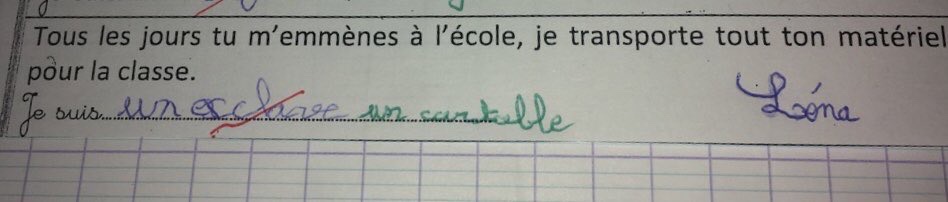 Tous les jours tu m'emmènes à l'école, je transporte tout ton matériel
pour la classe.
Je suis un esclave un cartable Léna